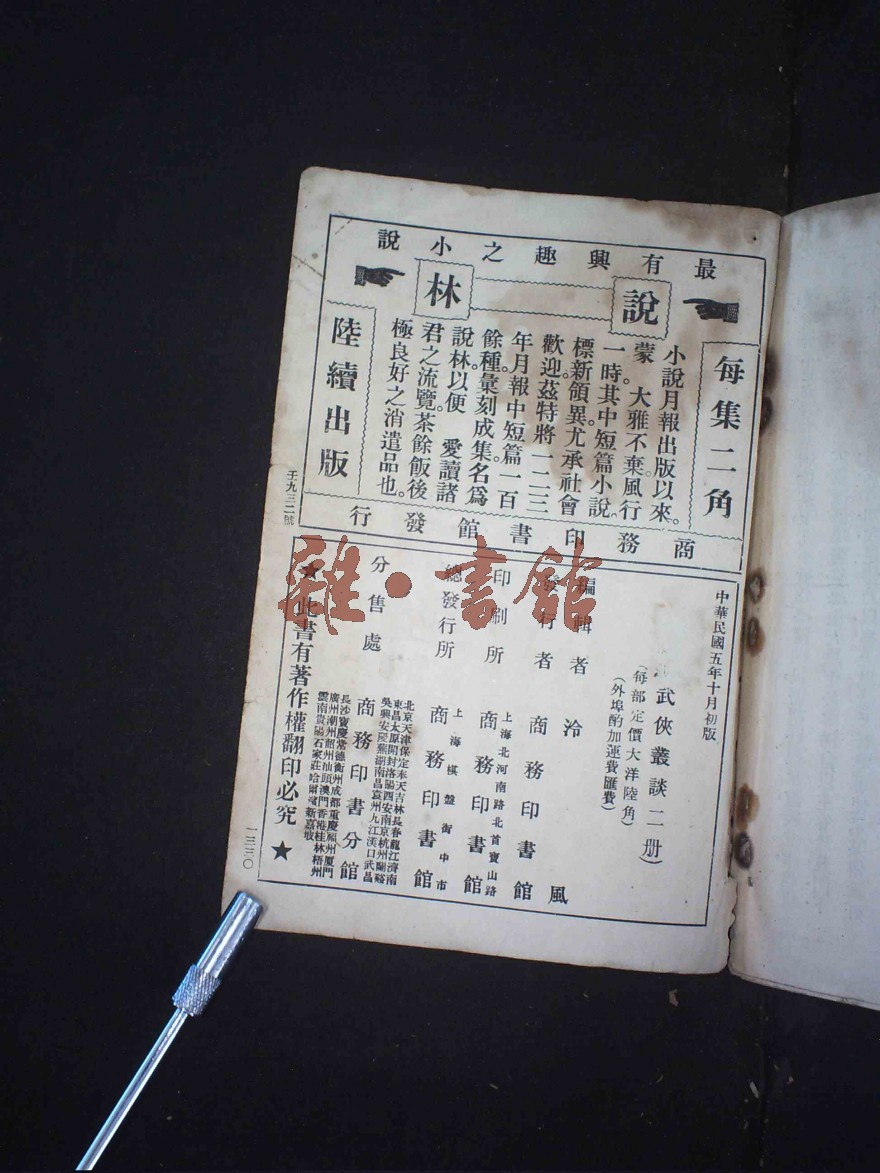 最有興趣之小說
說林
每集二角
小說月報出版以來。
蒙。大雅不棄風行
一時其中短篇小說。
標新領異尤承社會
歡迎茲特將一二三
年月報中短篇一百
餘種彙刻成集。名爲
說林以便 愛讀諸
君之流覽茶餘飯後
極良好之消遣品也。
陸續出版
商務印書館發行
壬九三二號
中華民國五年十月初版
武俠叢談二册
(每部定價大洋陸角)
(外埠酌加運費匯費)
編輯者 冷風
發行者 商務印書館
印刷所 上海北河南路北首寶山路 商務印書館
總發行所 上海棋盤街中市 商務印書館
分售處 商務印書分館
北京天津保定奉天吉林長春龍江濟南
東昌太原開封洛陽西安南京杭州蘭谿
吳興安慶蕪湖南昌袁州九江漢口武昌
長沙寶慶常德衡州成都重慶福州厦門
廣州潮州韶州汕頭澳門香港桂林梧州
雲南貴陽石家莊哈爾濱新嘉坡
★此書有著作權翻印必究★
一三三〇
雜·書館